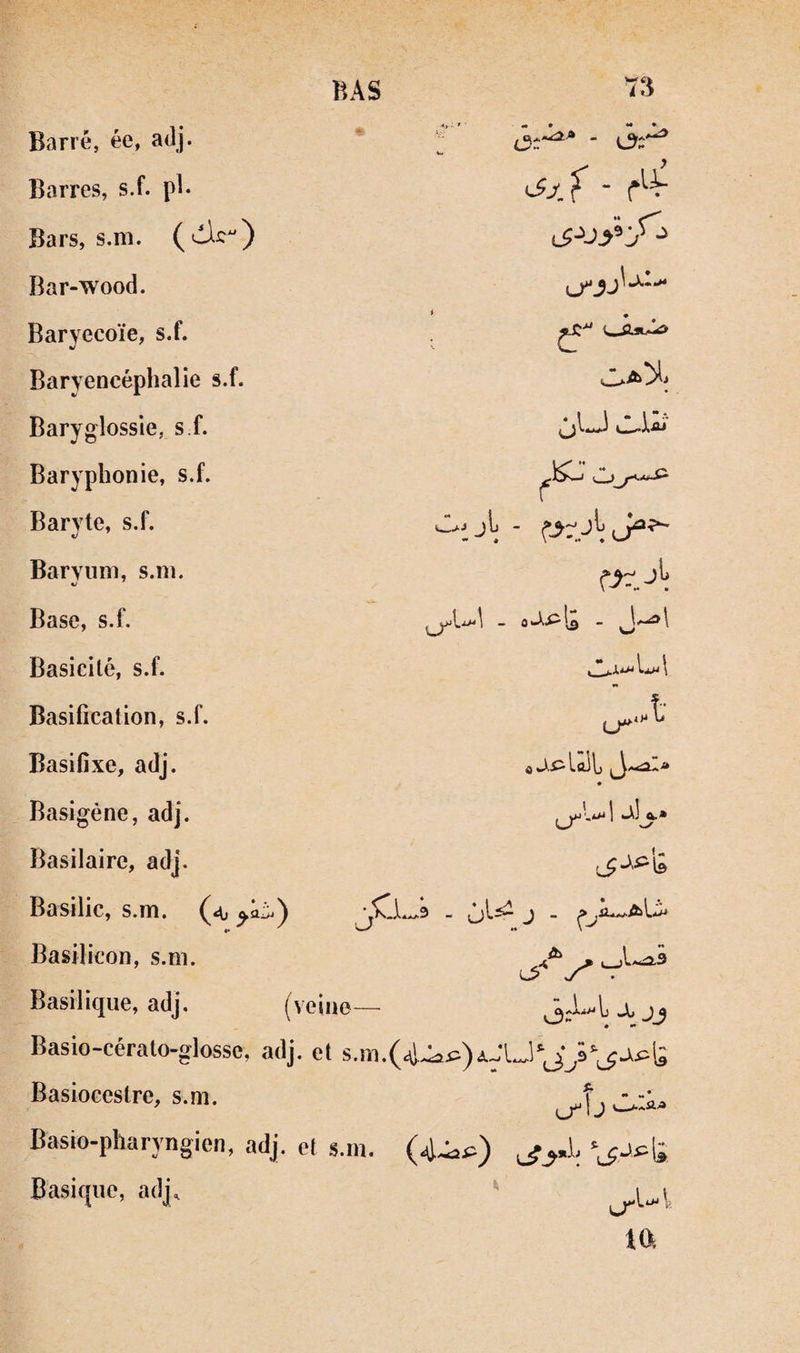 BAS 73
Barré, ée, adj. ضيق - مضيق
Barres, s.f. pl.
Bars, s.m. (سمك)
Bar-wood.
Baryecoïe, s.f. ضعف سمع
Baryencéphalie s.f. بلاهت
Baryglossie, s.f. ثقلت لسان
Baryphonie, s.f. عسرت تكلم
Baryte, s.f. باريت
Baryum, s.m. باريوم
Base, s.f. اصل - قاعده - اساس
Basicité, s.f. اساسيت
Basification, s.f. تأسس
Basifixe, adj. متصل بالقاعده
Basigène, adj. مولد اساس
Basilaire, adj. قاعدى
Basilic, s.m. شاهسفرم
Basilicon, s.m.
Basilique, adj. (veine— وريد باسليق
Basio-cérato-glosse, adj. et s.m. (عضله)
Basiocestre, s.m.
Basio-pharyngien, adj. et s.m. (عضله) قاعدى بلعومى
Basique, adj. اساسى
10